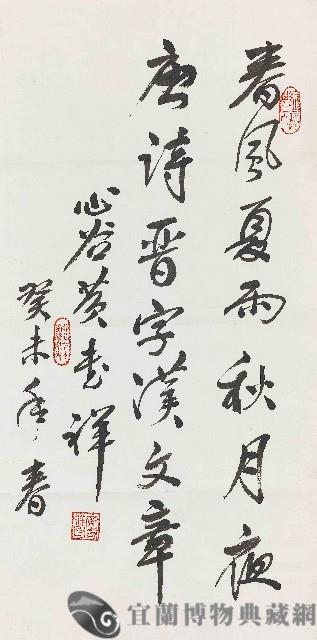 春風夏雨秋月夜
唐詩晉字漢文章
心谷黃書祥
癸未年春
宜蘭博物典藏網